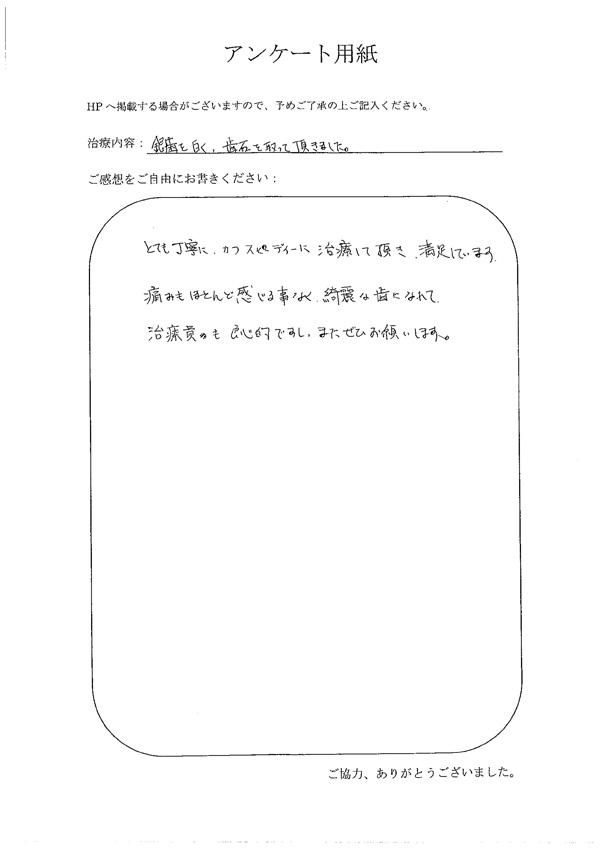 アンケート用紙
HPへ掲載する場合がございますので、予めご了承の上ご記入ください。
治療内容：銀歯を白く、歯石を取って頂きました。
ご感想をご自由にお書きください：
とても丁寧に、かつスピーディーに治療して頂き、満足しています。
痛みもほとんど感じる事なく、綺麗な歯になれて、
治療費も良心的ですし、またぜひお願いします。
ご協力、ありがとうございました。